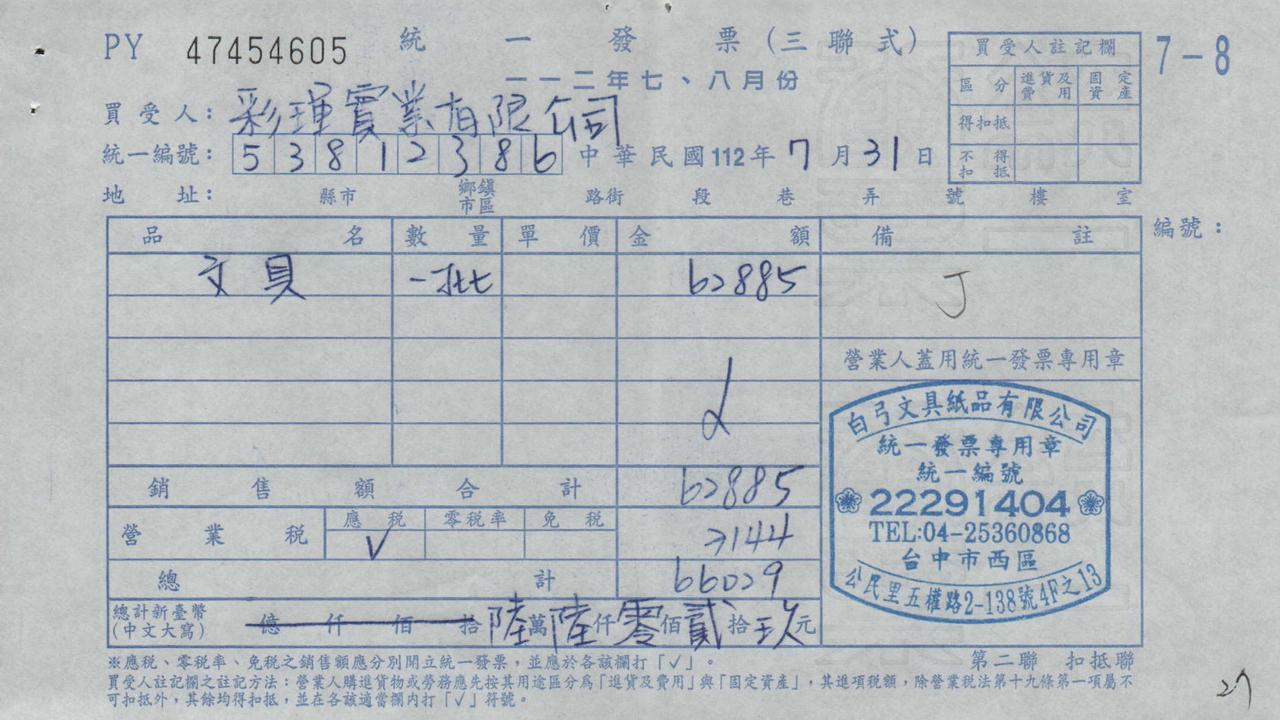 PY 47454605 統一發票(三聯式)
一一二年七、八月份
7-8
買受人註記欄
區分 進貨及費用 固定資產
得扣抵
不得扣抵
買受人: 彩琿實業有限公司
統一編號: 53812386 中華民國112年7月31日
地址: 縣市 鄉鎮市區 路街 段 巷 弄 號 樓 室
編號:
品名 數量 單價 金額 備註
文具 一批 62885 J
營業人蓋用統一發票專用章
銷售額合計 62885
營業稅 應稅 零稅率 免稅
√ 3144
總計 66029
總計新臺幣(中文大寫) 億仟佰拾陸萬陸仟零佰貳拾玖元
白弓文具紙品有限公司
統一發票專用章
統一編號
22291404
TEL:04-25360868
台中市西區
公民里五權路2-138號4F之13
※應稅、零稅率、免稅之銷售額應分別開立統一發票,並應於各該欄打「√」。
第二聯 扣抵聯
買受人註記欄之註記方法:營業人購進貨物或勞務應先按其用途區分為「進貨及費用」與「固定資產」,其進項稅額,除營業稅法第十九條第一項屬不
可扣抵外,其餘均得扣抵,並在各該適當欄內打「√」符號。
27